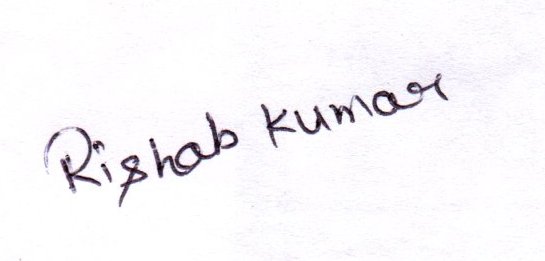 Rishab Kumar